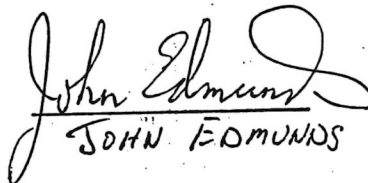 John Edmunds
JOHN EDMUNDS